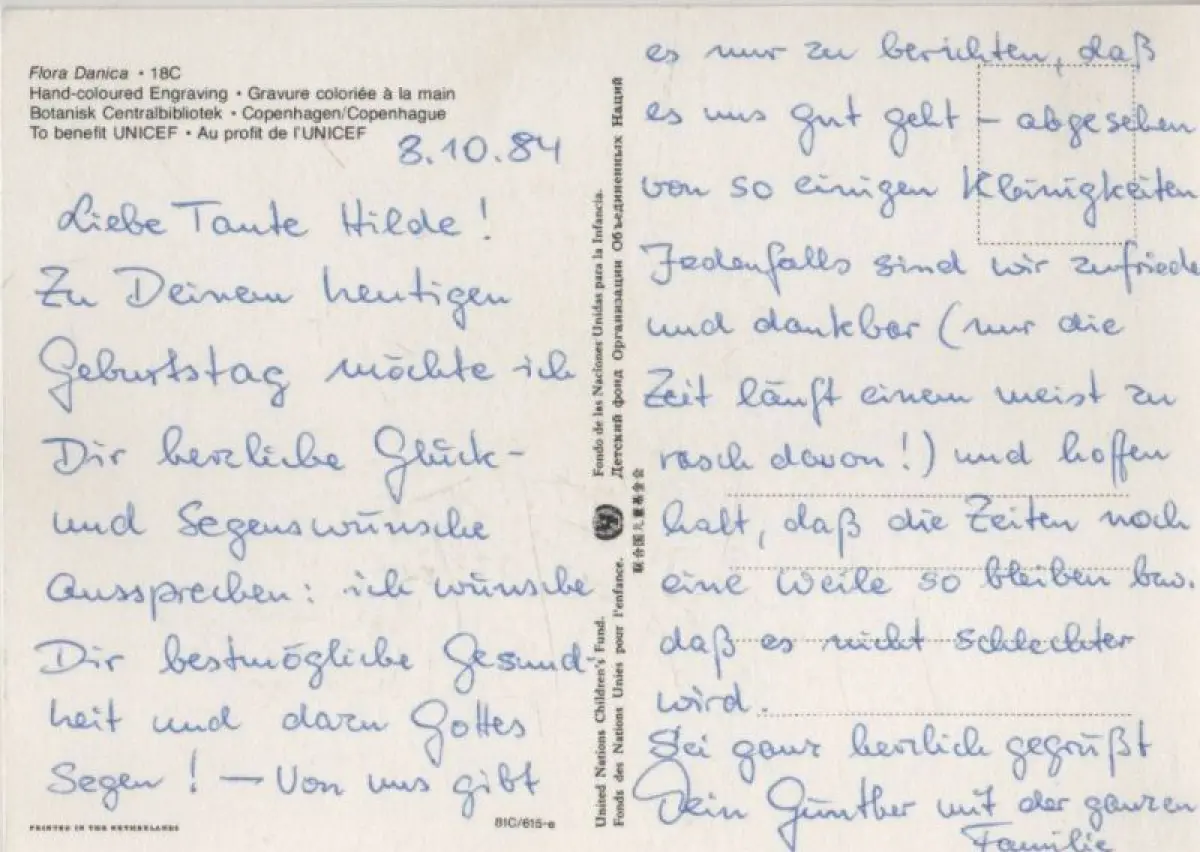 Flora Danica • 18C
Hand-coloured Engraving • Gravure coloriée à la main
Botanisk Centralbibliotek • Copenhagen/Copenhague
To benefit UNICEF • Au profit de l'UNICEF
8.10.84
Liebe Tante Hilde!
Zu Deinem heutigen
Geburtstag möchte ich
Dir herzliche Glück-
und Segenswünsche
aussprechen: ich wünsche
Dir bestmögliche Gesund-
heit und dazu Gottes
Segen! – Von uns gibt
PRINTED IN THE NETHERLANDS
81C/615-e
United Nations Children's Fund. Fondo de las Naciones Unidas para la Infancia.
Fonds des Nations Unies pour l'enfance. Детский фонд Организации Объединенных Наций
联合国儿童基金会
es nur zu berichten, daß
es uns gut geht – abgesehen
von so einigen Kleinigkeiten
Jedenfalls sind wir zufriede
und dankbar (nur die
Zeit läuft einem meist zu
rasch davon!) und hoffen
halt, daß die Zeiten noch
eine Weile so bleiben bzw.
daß es nicht schlechter
wird.
Sei ganz herzlich gegrüßt
Dein Günther mit der ganzen
Familie